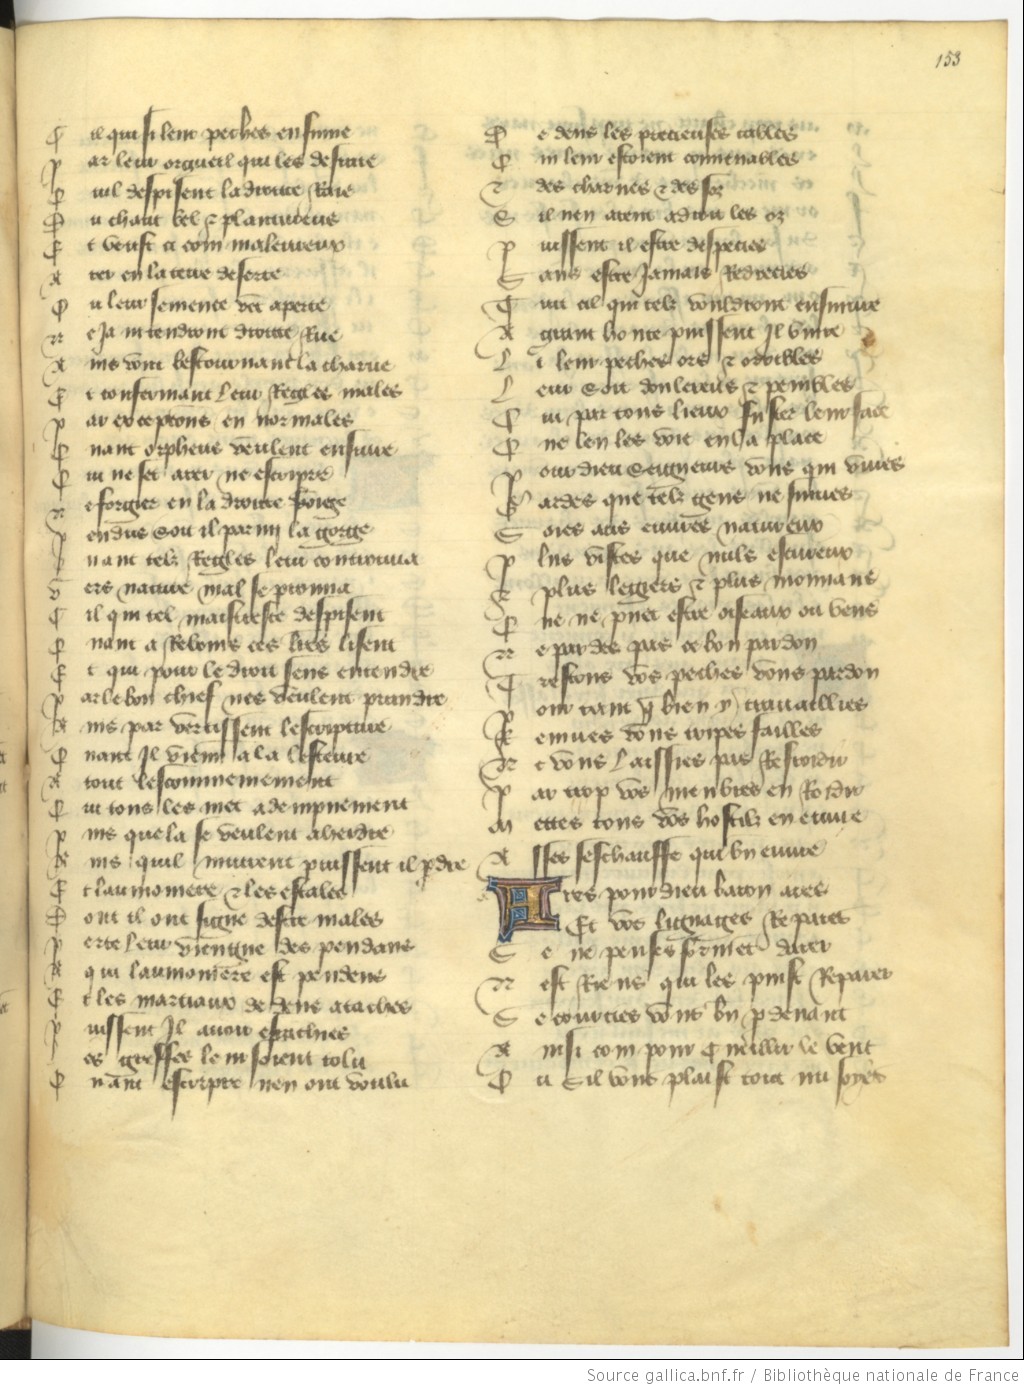 153
C il qui si lent peches ensuiue
P ar leur orgueil qui les desuoie
Q uil despisent la droite Rue
D u chant bel et plantureus
E t veust ci com maleureux
A rer en la terre deserte
O u leur semence vet a perte
N e ja ni tendront droite Rue
A ins vont bestournant la charue
E t conferment leur Regles males
P ar excepcions en normales
Q uant orpheus veulent ensuiure
Q ui ne set arer ne escripre
N e forgier en la droite forge
P endus soit il par mi la gorge
Q uant telz Regles leur controuua
V ers nature mal se prouua
C il qui tel maistresse despisent
Q uant a Rebours ces lres lisent
E t qui pour le droit sens entendre
P ar le bon chief nes veulent prandre
A ins par vertissent lescripture
Q uant Il viennent a la lecture
A tout lescomeniement
Q ui tous les met a dempnement
P uis que la se veulent aherdre
A ins quil muirent puissent il pdre
E t laumoniere et les estales
D ont il ont signe destre males
P erte leur viengne des pendans
A qui laumoniere est pendens
E t les martiaux de dens ataches
P uissent Il auoir esrachies
L es greffes leur soient tolu
Q uant escripre nen ont voulu
D e dens les precieuses tables
Q ui leur estoient couuenables
E t des charues et des sos
S il nen arent a droit les os
P uissent il estre despecies
S ans estre Jamais Redrecies
T uit cil qui telz vouldront ensuiure
A grant honte puissent Il viure
L i leur peches ors et orribles
L eur soit douleureus et penibles
Q ui par tous lieux fuster leur face
Q ue len les voit en la place
P our dieu seigneurs vous qui viues
G ardes que telz gens ne suiues
S oies aus euures natureux
P lus vistes que nuls escureux
E t plus legiers et plus mouuans
Q ue ne puet estre oiseaux ou vens
N e pardes pas ce bon pardon
T restous vos peches vous pardon
P our tant q bien y trauaillies
R emues vous tripes saillies
N e vous laissies pas Refroidir
P ar trop vos menbres en Roidir
M ettes tous vos hostilz en euure
A sses seschauffe qui bn euure
A res pour dieu baron ares
Et vos lignages Repares
S e ne penses forment darer
N est Riens qui les puist Reparer
S e courcies vous bn p deuant
A insi com pour Cueillir le vent
O u sil vous plaist tout nu soyes